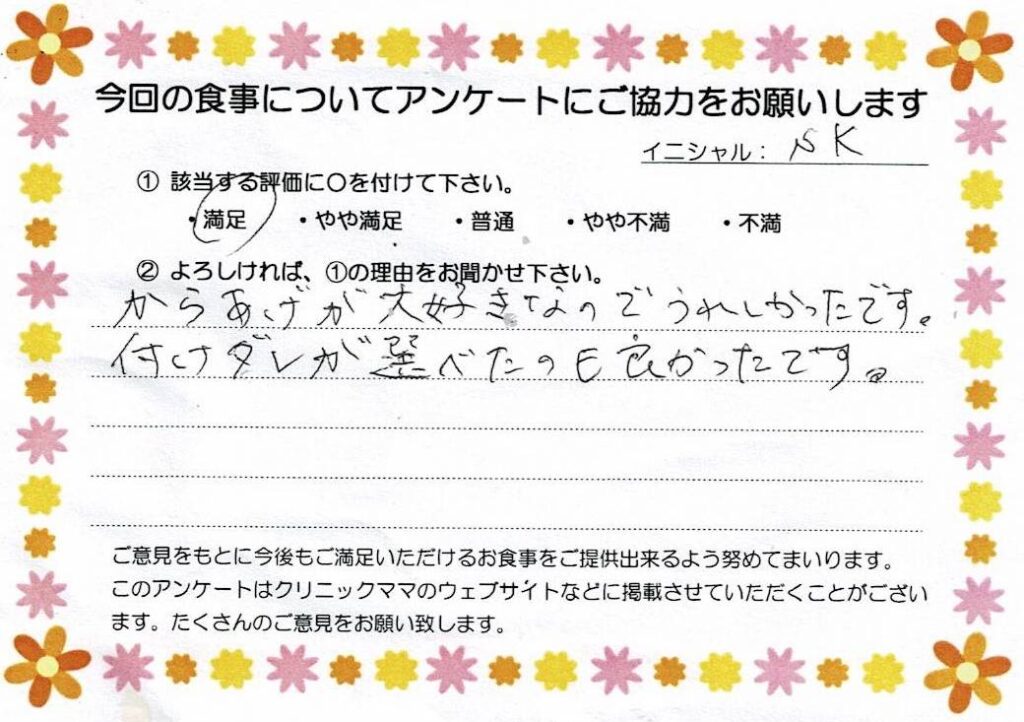 今回の食事についてアンケートにご協力をお願いします
イニシャル： NK
① 該当する評価に〇を付けて下さい。
・満足 ・やや満足 ・普通 ・やや不満 ・不満
② よろしければ、①の理由をお聞かせ下さい。
からあげが大好きなのでうれしかったです。
付けダレが選べたのも良かったです。
ご意見をもとに今後もご満足いただけるお食事をご提供出来るよう努めてまいります。
このアンケートはクリニックママのウェブサイトなどに掲載させていただくことがござい
ます。たくさんのご意見をお願い致します。